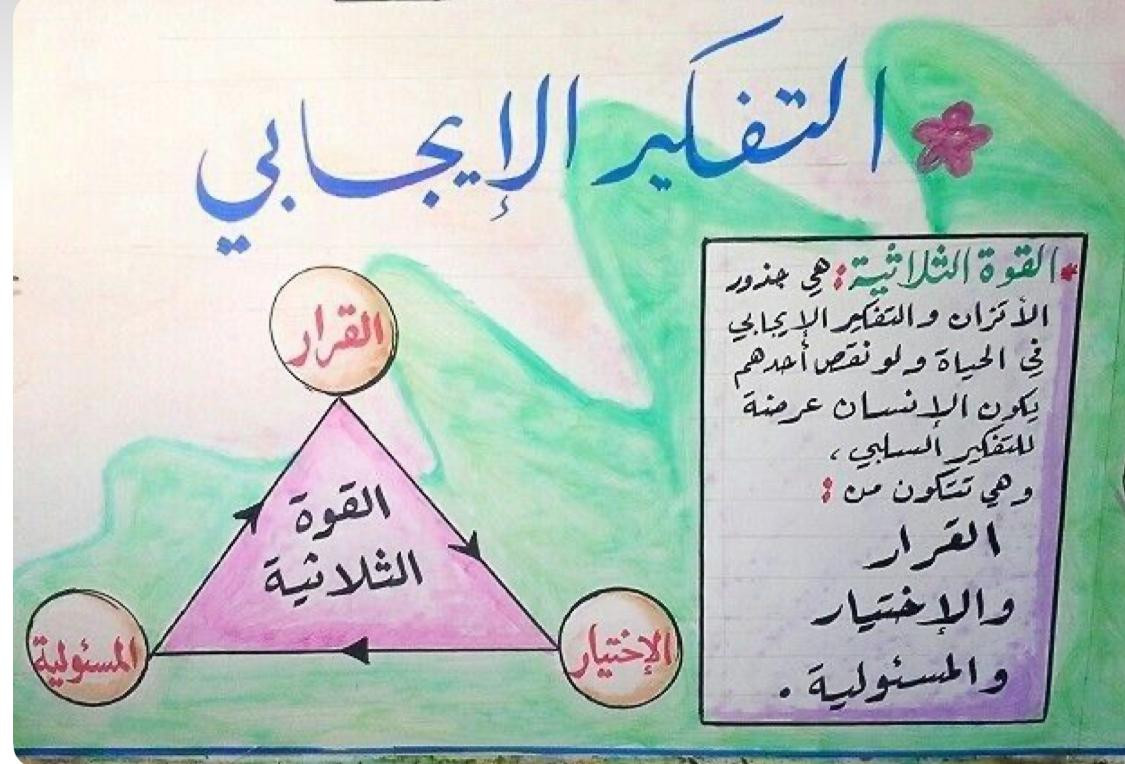 التفكير الإيجابي
* القوة الثلاثية: هي جذور
الأتزان والتفكير الإيجابي
في الحياة ولو نقص أحدهم
يكون الإنسان عرضة
للتفكير السلبي،
وهي تتكون من:
القرار
والإختيار
والمسئولية.
القرار
القوة
الثلاثية
الإختيار
المسئولية